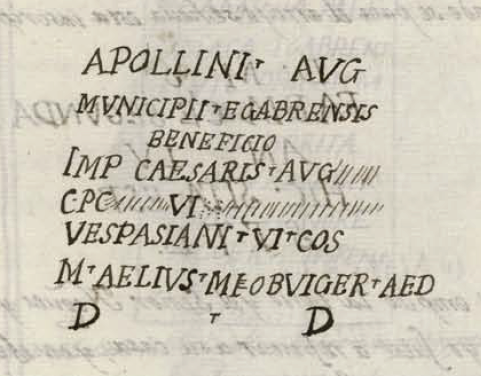 APOLLINI · AVG
MVNICIPII · EGABRENSIS
BENEFICIO
IMP CAESARIS · AVG
CPC VI
VESPASIANI · VI · COS
M · AELIVS · MF OBVIGER · AED
D · D